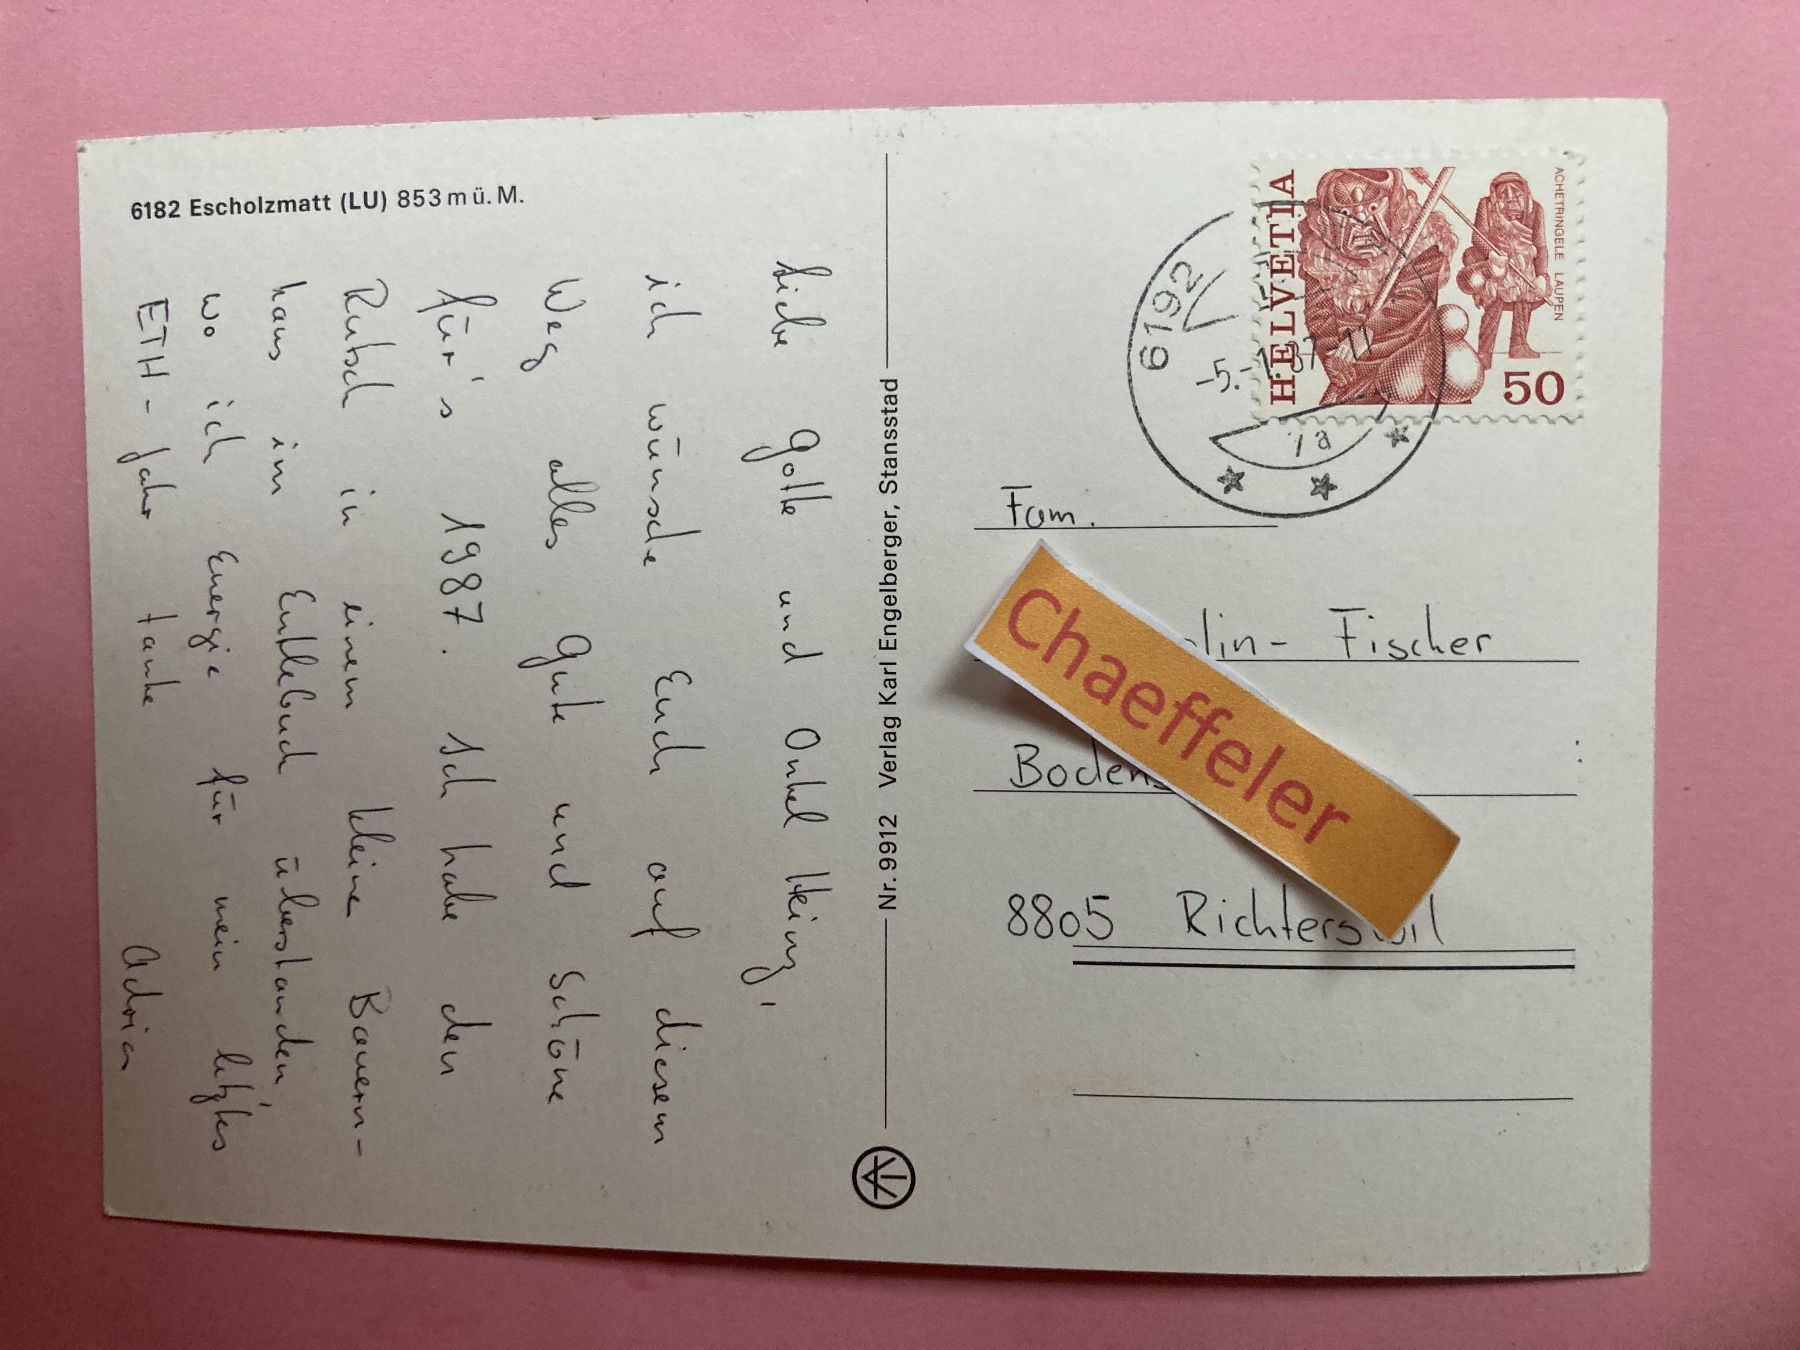 6182 Escholzmatt (LU) 853 m ü. M.
Liebe Gotte und Onkel Heinz,
ich wünsche Euch auf diesem
Weg alles Gute und Schöne
für's 1987. Ich habe den
Rutsch in einem kleine Bauern-
haus im Entlebuch überstanden,
wo ich Energie für mein letztes
ETH-Jahr tanke
Adrian
Nr. 9912 Verlag Karl Engelberger, Stansstad
HELVETIA
ACHETRINGELE LAUPEN
50
6192
-5.-1.87-11
Fam.
lin- Fischer
Bodens
8805 Richterswil
Chaeffeler